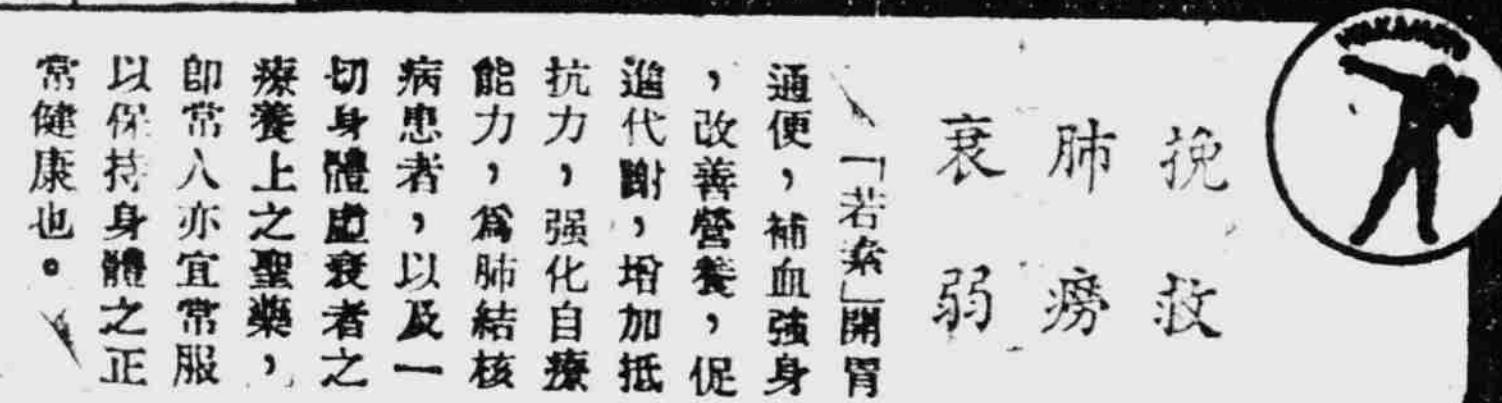 WAKAMOTO
挽救
肺癆
衰弱
「若素」開胃
通便，補血强身
，改善營養，促
進代謝，增加抵
抗力，强化自療
能力，爲肺結核
病患者，以及一
切身體虛衰者之
療養上之聖藥，
卽常人亦宜常服
以保持身體之正
常健康也。